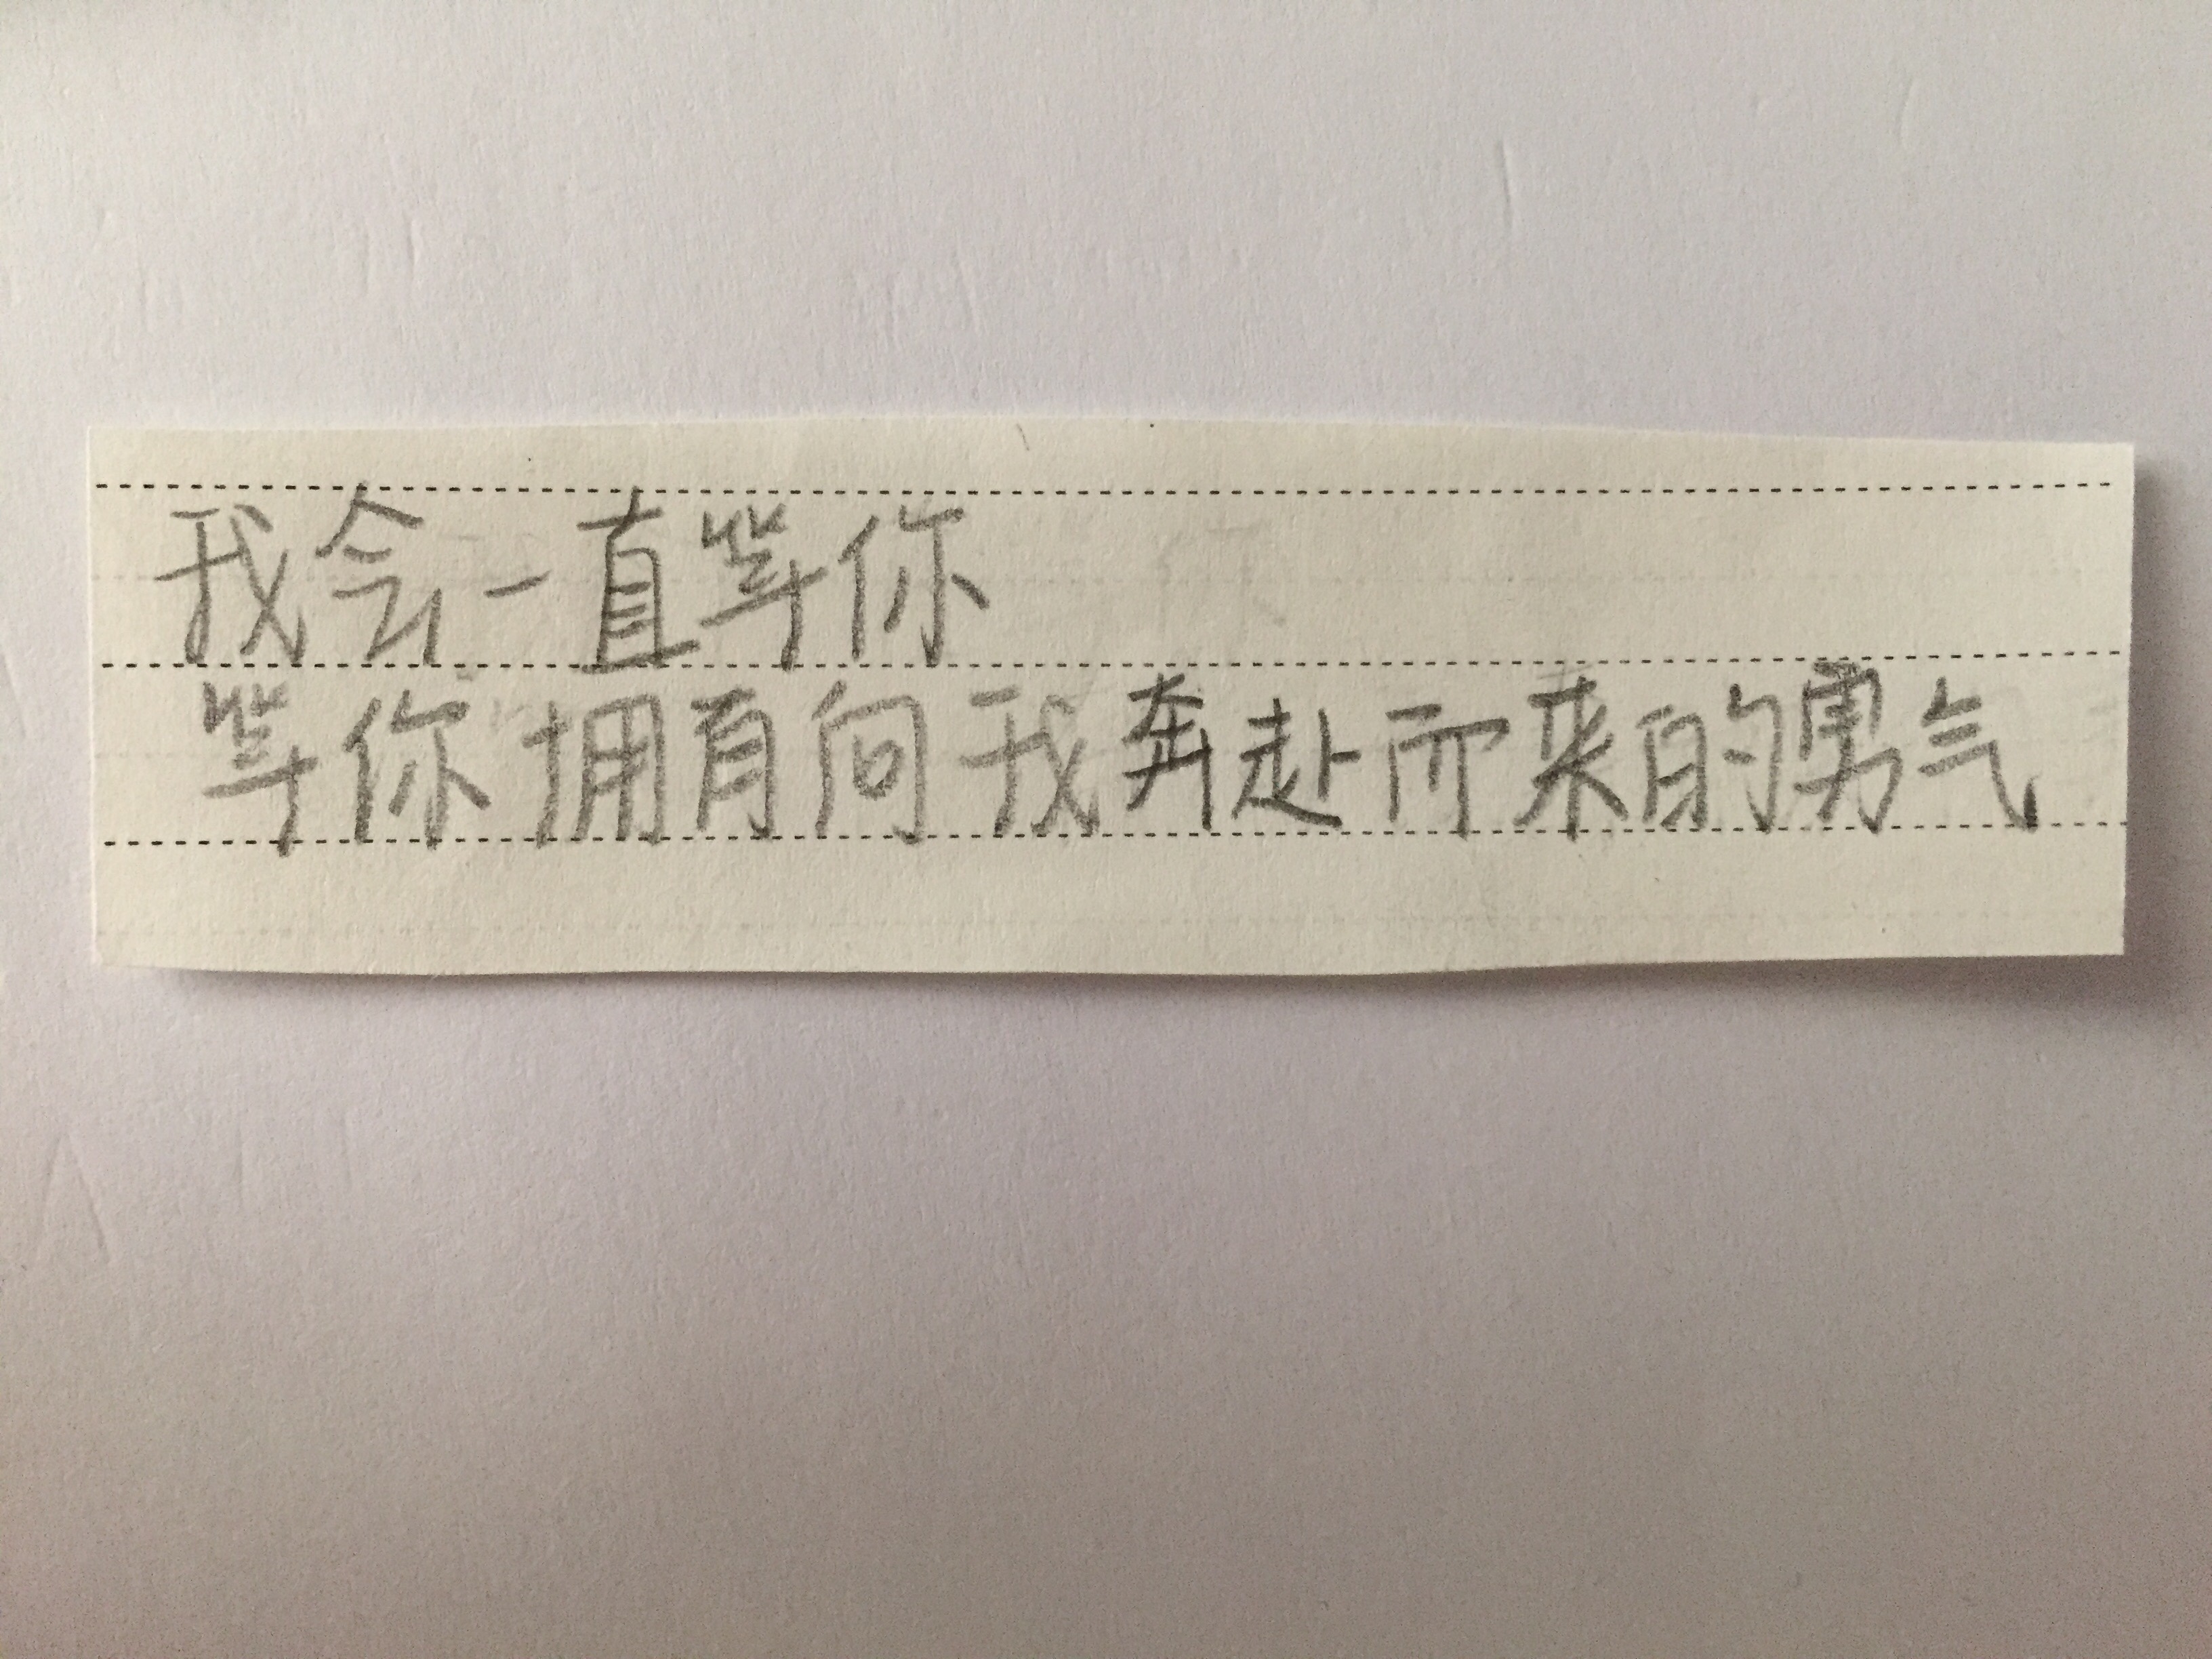 我会一直等你
等你拥有向我奔赴而来的勇气